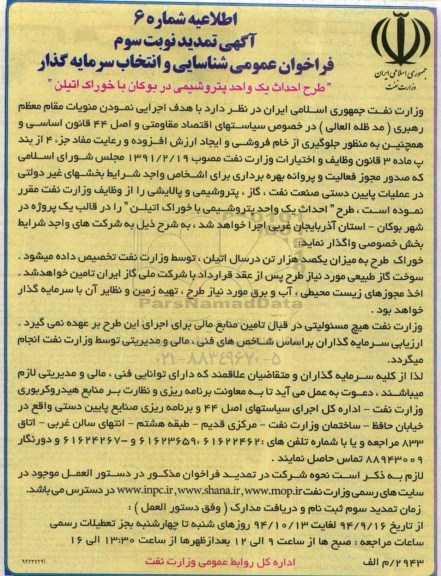 اطلاعیه شماره ۶
آگهی تمدید نوبت سوم
فراخوان عمومی شناسایی و انتخاب سرمایه گذار
"طرح احداث یک واحد پتروشیمی در بوکان با خوراک اتیلن"
جمهوری اسلامی ایران
وزارت نفت
وزارت نفت جمهوری اسلامی ایران در نظر دارد با هدف اجرایی نمودن منویات مقام معظم
رهبری ( مد ظله العالی ) در خصوص سیاستهای اقتصاد مقاومتی و اصل ۴۴ قانون اساسی و
همچنین به منظور جلوگیری از خام فروشی و ایجاد ارزش افزوده و رعایت مفاد جز ۴۰ از بند
پ ماده ۳ قانون وظایف و اختیارات وزارت نفت مصوب ۱۳۹۱/۲/۱۹ مجلس شورای اسلامی
که صدور مجوز فعالیت و پروانه بهره برداری برای اشخاص واجد شرایط بخشهای غیر دولتی
در عملیات پایین دستی صنعت نفت ، گاز ، پتروشیمی و پالایشی را از وظایف وزارت نفت مقرر
نموده است ، طرح " احداث یک واحد پتروشیمی با خوراک اتیلن " را در قالب یک پروژه در
شهر بوکان - استان آذربایجان غربی اجرا خواهد شد ، به شرح ذیل به شرکت های واجد شرایط
بخش خصوصی واگذار نماید:
خوراک طرح به میزان یکصد هزار تن در سال اتیلن ، توسط وزارت نفت تخصیص داده میشود .
سوخت گاز طبیعی مورد نیاز طرح پس از عقد قرارداد با شرکت ملی گاز ایران تامین خواهد شد .
اخذ مجوزهای زیست محیطی ، آب و برق مورد نیاز طرح ، تهیه زمین و نظایر آن با سرمایه گذار
خواهد بود .
وزارت نفت هیچ مسئولیتی در قبال تامین منابع مالی برای اجرای این طرح بر عهده نمی گیرد .
ارزیابی سرمایه گذاران براساس شاخص های فنی ، مالی و مدیریتی توسط وزارت نفت انجام
میگردد.
لذا از کلیه سرمایه گذاران و متقاضیان علاقمند که دارای توانایی فنی ، مالی و مدیریتی لازم
میباشند ، دعوت به عمل می آید تا به معاونت برنامه ریزی و نظارت بر منابع هیدروکربوری
وزارت نفت - اداره کل اجرای سیاستهای اصل ۴۴ و برنامه ریزی صنایع پایین دستی واقع در
خیابان حافظ - ساختمان وزارت نفت - مرکزی قدیم - طبقه هشتم - انتهای سالن غربی - اتاق
۸۳۳ مراجعه و یا با شماره تلفن های : ۶۱۶۲۲۴۶۲ ، ۶۱۶۲۳۶۵۹ و ۶۱۶۲۴۲۶۷- و دورنگار
۸۸۹۴۳۰۰۹ تماس حاصل نمایند .
لازم به ذکر است نحوه شرکت در تمدید فراخوان مذکور در دستور العمل موجود در
سایت های رسمی وزارت نفت www.inpc.ir, www.shana.ir, www.mop.ir در دسترس می باشد.
زمان تمدید سوم ثبت نام و دریافت مدارک ( وفق دستور العمل ) :
از تاریخ ۹۴/۹/۱۶ لغایت ۹۴/۱۰/۱۳ روزهای شنبه تا چهارشنبه بجز تعطیلات رسمی
ساعات مراجعه : صبح ها از ساعت ۹ الی ۱۲ بعدازظهرها از ساعت ۱۳:۳۰ الی ۱۶
۲۹۴۳/م الف
اداره کل روابط عمومی وزارت نفت
ParsNamadData
۰۲۱-۸۸۳۴۹۶۷۰-۵